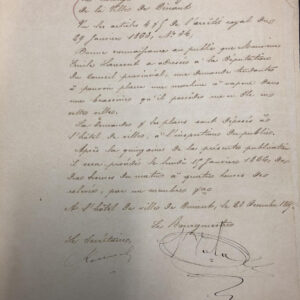 de la Ville de Dinant
Vu les articles 4 & 5 de l'arrêté royal du
29 Janvier 1863, N° 46,
Donne connaissance au public que Monsieur
Emile Laurent a adressé à la Députation
du Conseil provincial, une demande tendante
à pouvoir placer une machine à vapeur dans
une brasserie qu'il possède en
cette ville.
La demande & les plans sont déposés à
l'hôtel de ville, à l'inspection du public.
Après la quinzaine de la présente publication
il sera procédé le lundi Janvier 1866, de
dix heures du matin à quatre heures de
relevée, par un membre
A l'hôtel de ville de Dinant, le 22 Décembre
Le Bourgmestre
Le Secrétaire,